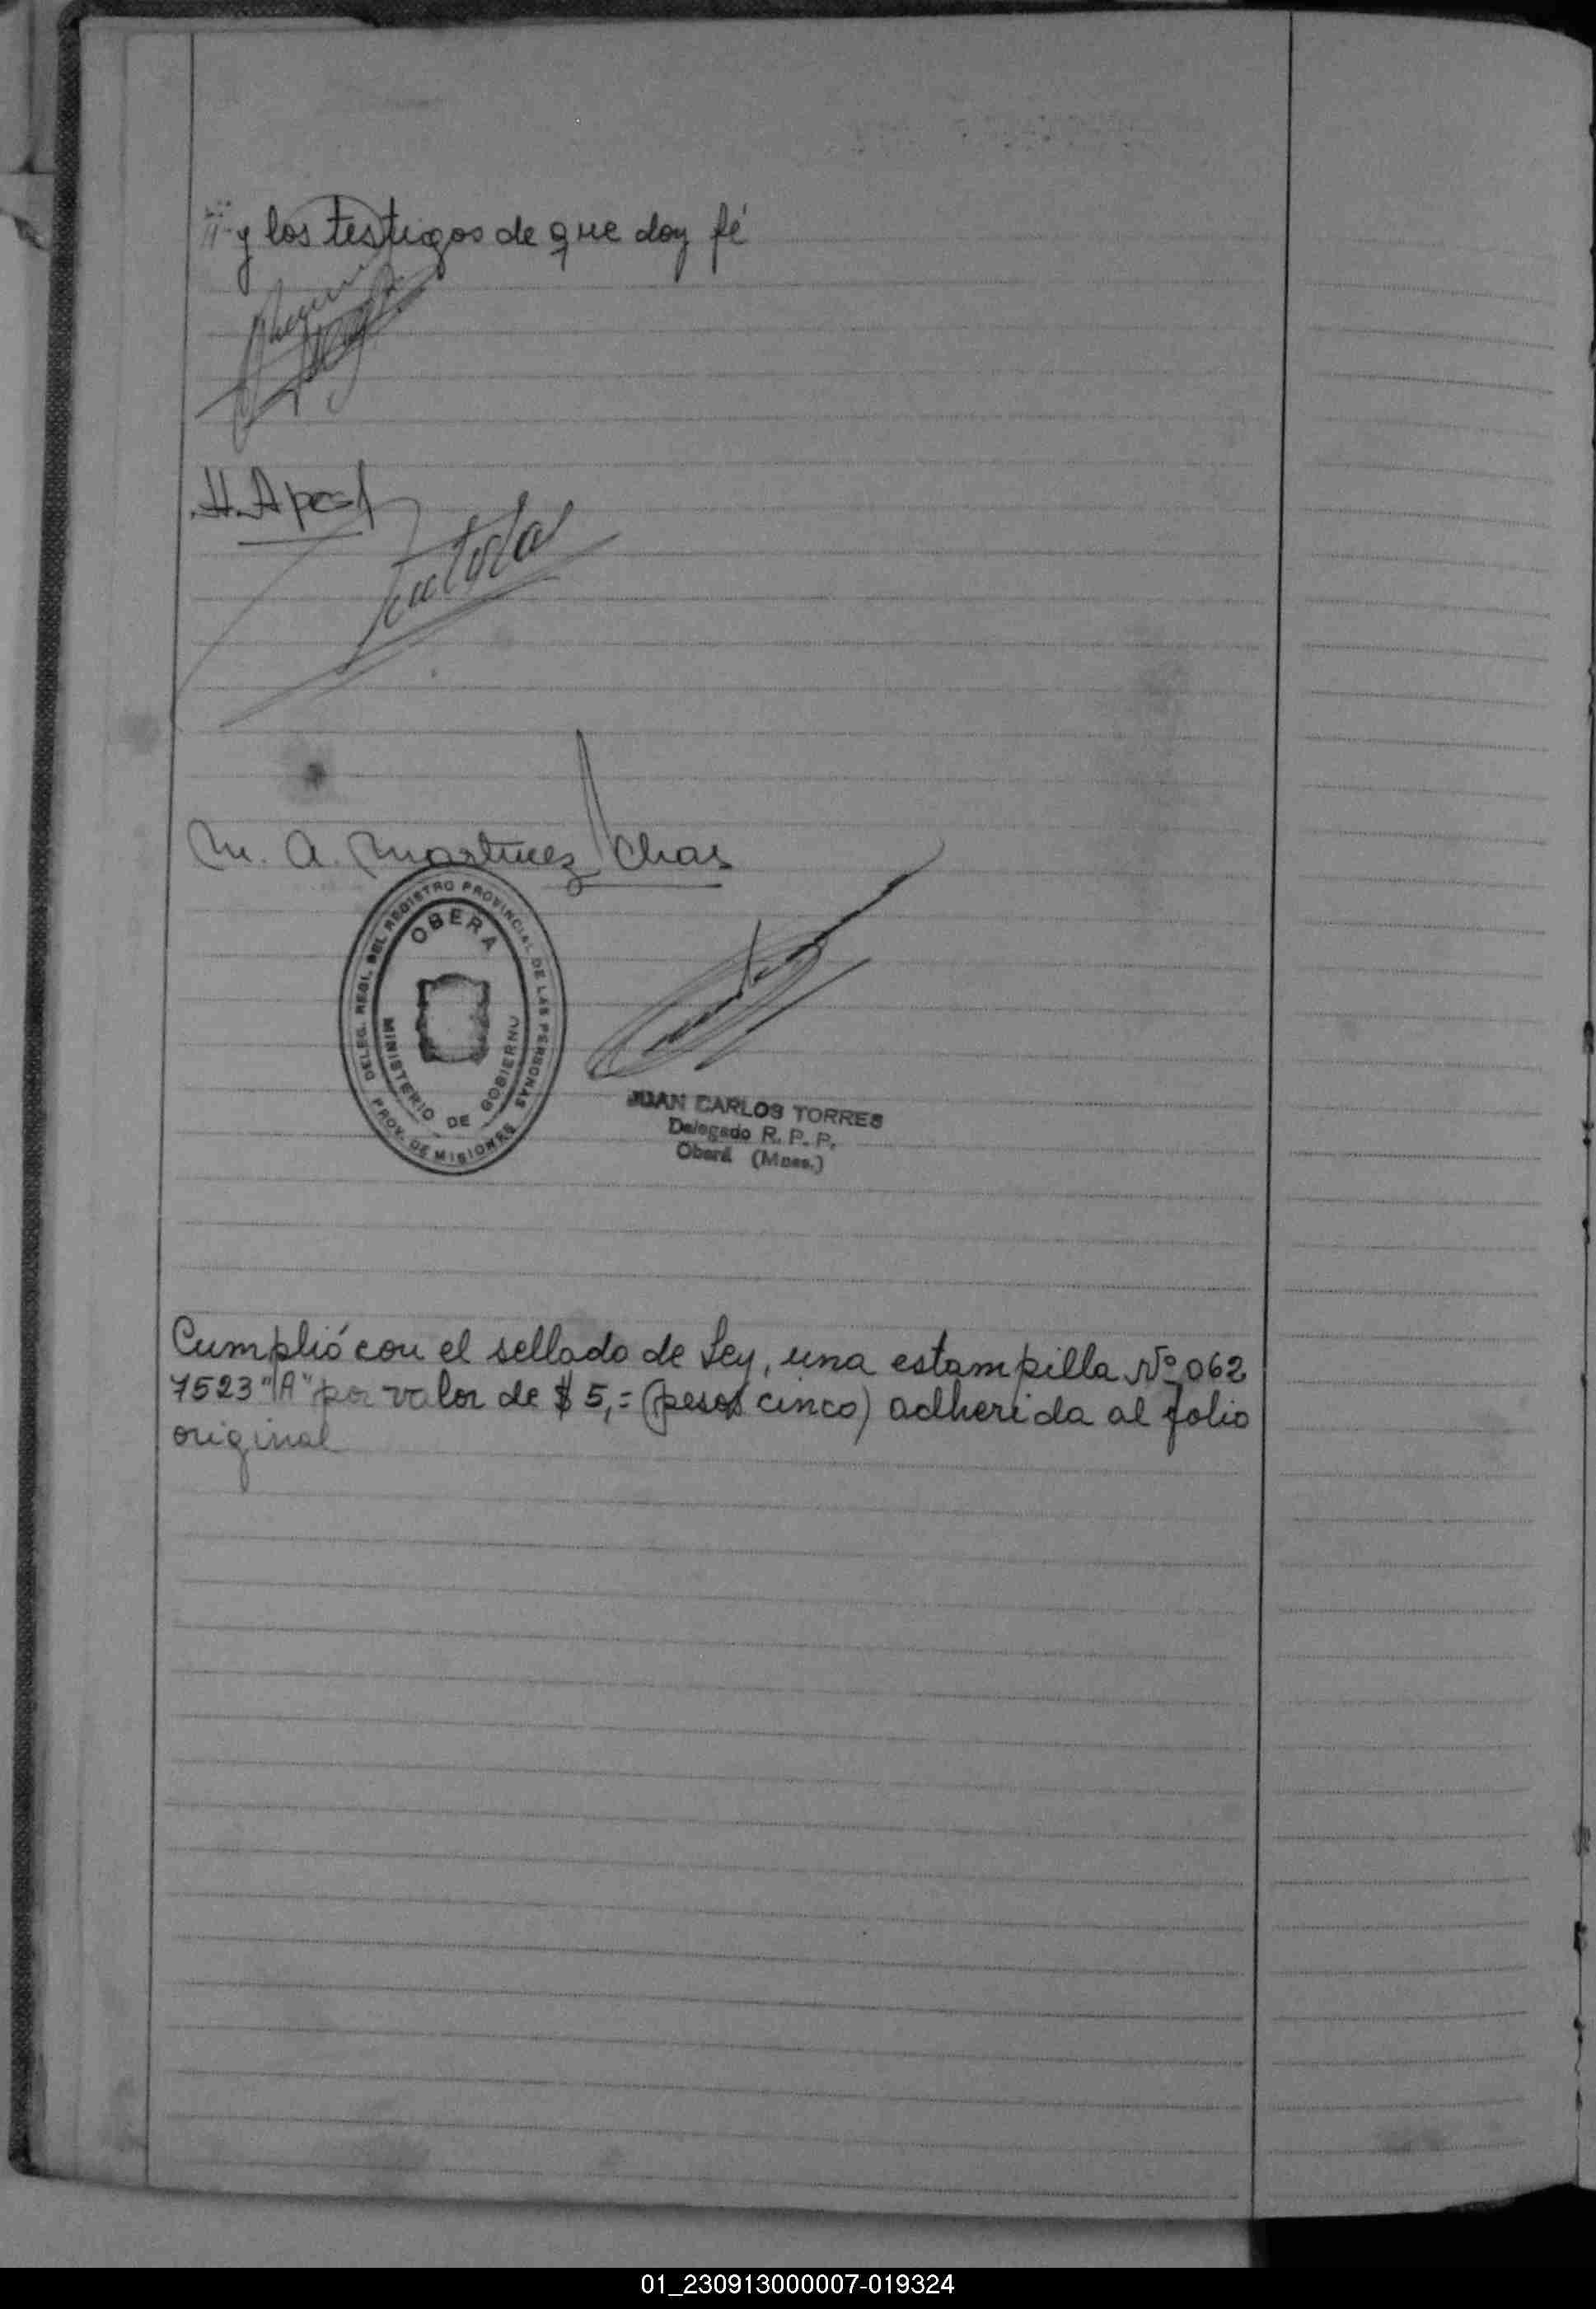 y los testigos de que doy fé
H. Apesl
M. A. Martinez Chas
DELEG. REGI. DEL REGISTRO PROVINCIAL DE LAS PERSONAS
OBERA
MINISTERIO DE GOBIERNO
PROV. DE MISIONES
JUAN CARLOS TORRES
Delegado R. P. P.
Oberá (Mnes.)
Cumplió con el sellado de Ley, una estampilla Nº 062
7523 "A" por valor de $ 5,= (pesos cinco) adherida al folio
original
01_230913000007-019324